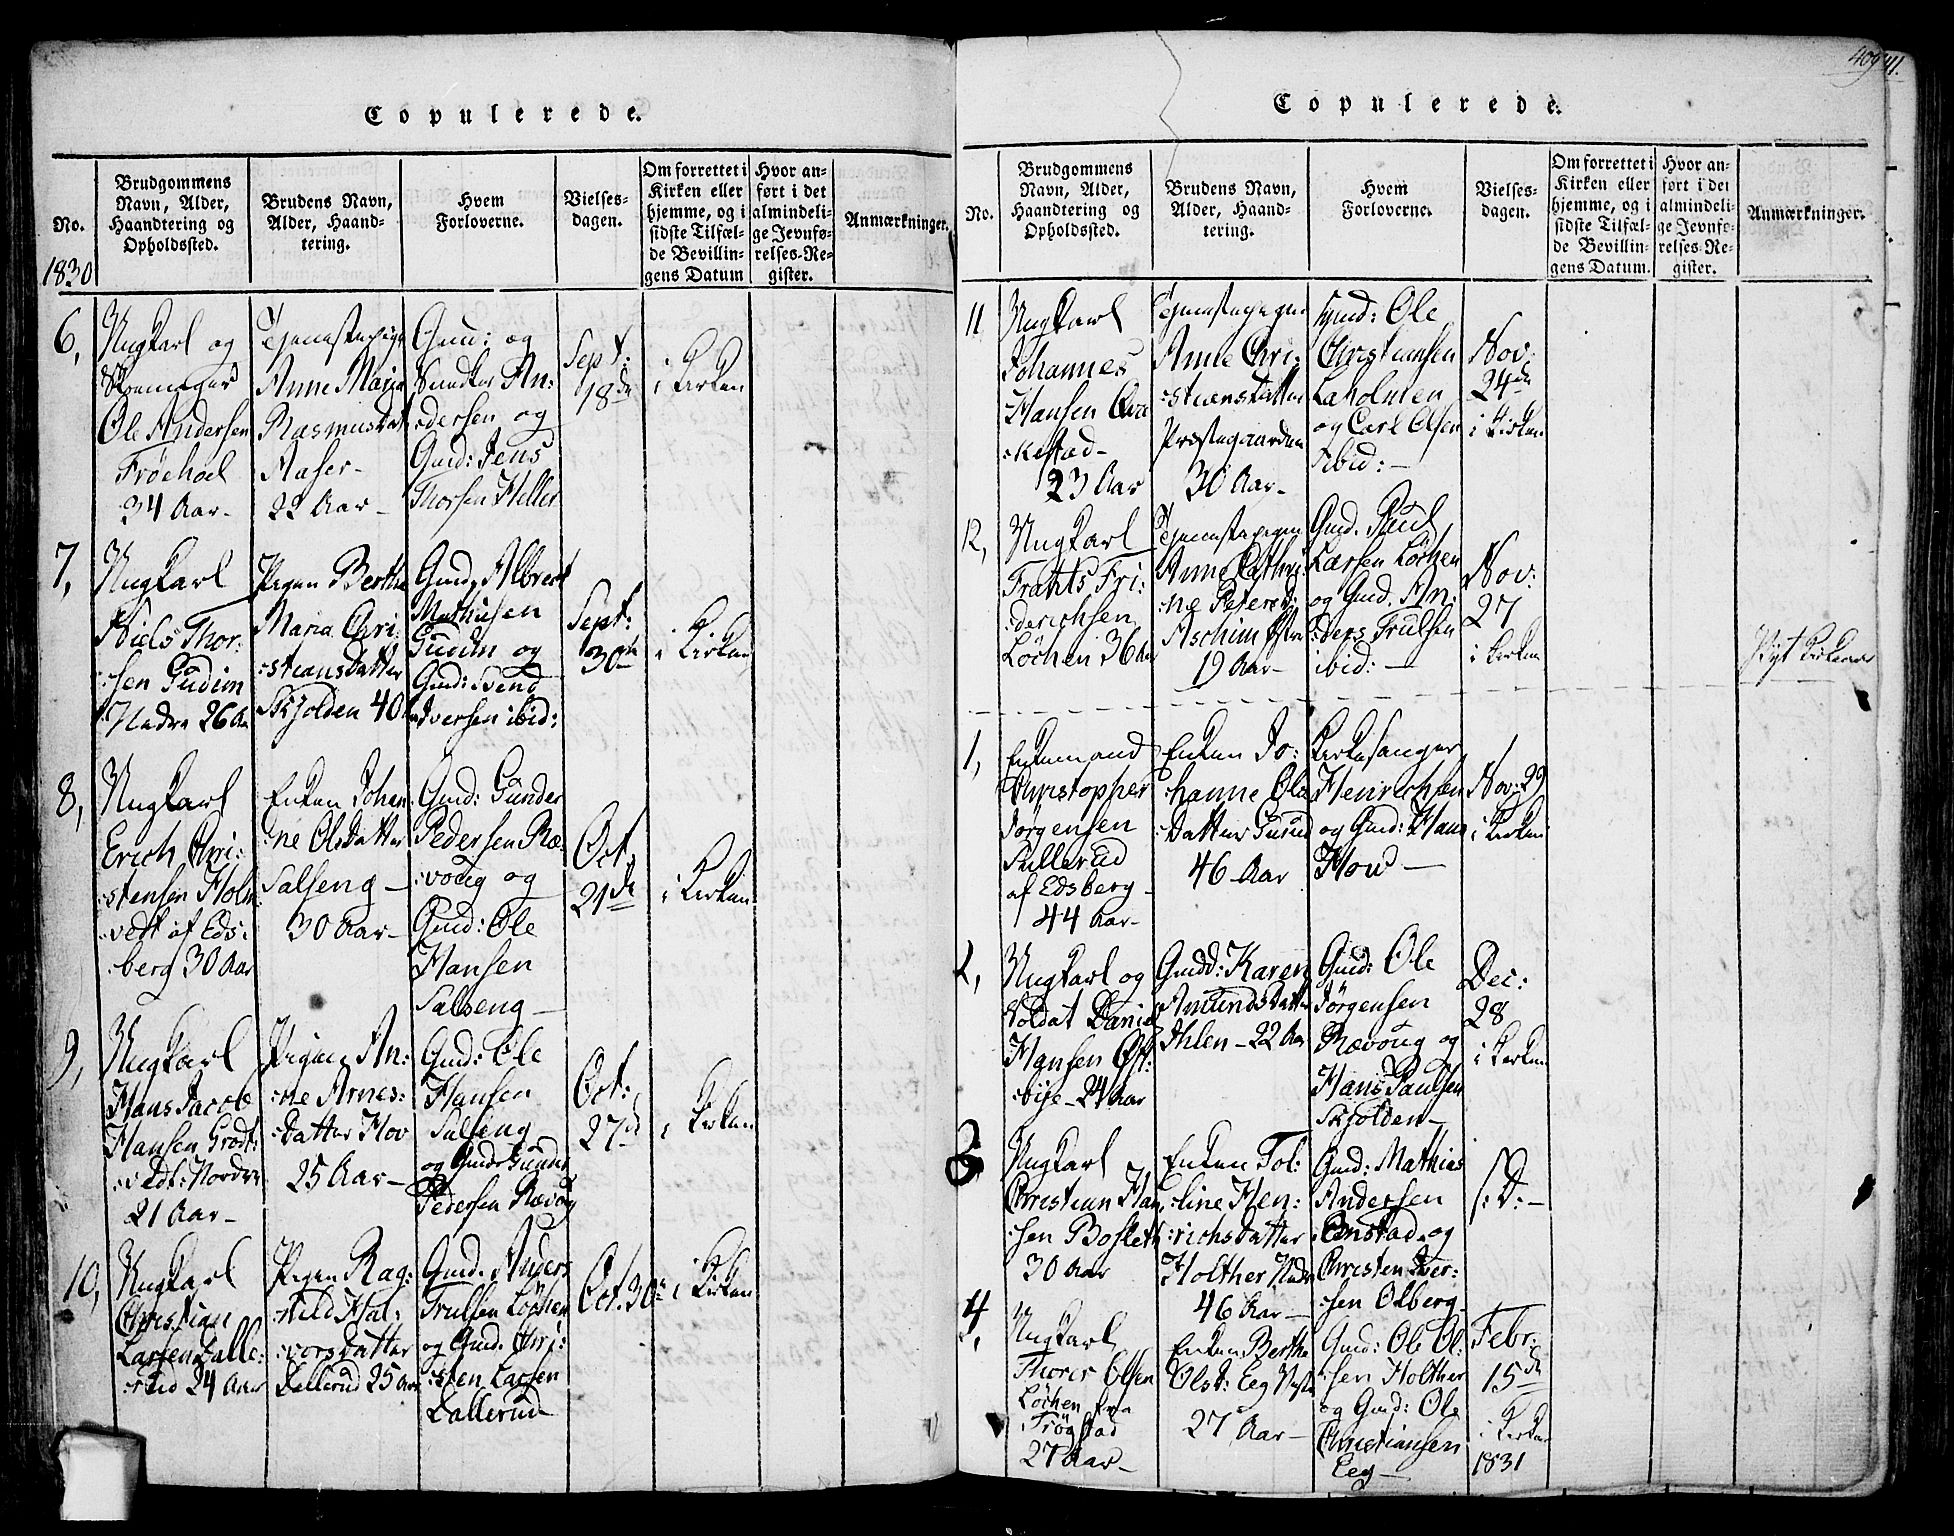 Copulerede.
No.
Brudgommens
Navn, Alder,
Haandtering og
Opholdssted.
Brudens Navn,
Alder, Haand-
tering.
Hvem
Forloverne.
Vielses-
dagen.
Om forrettet i
Kirken eller
hjemme, og i
sidste Tilfæl-
de Bevillin-
gens Datum
Hvor an-
ført i det
almindeli-
ge Jevnfø-
relses-Re-
gister.
Anmærkninger.
1830
6,
Ungkarl og
Ole Andersen
Frøehoel
34 Aar-
Tjenestepige
Anne Maja
Rasmusdat
Aaser-
22 Aar-
Gmd: og
Smukker An:
:dersen og
Gmd: Jens
Thorsen Heller
Sept:
18de
i Kirken
7,
Ungkarl
Niels Thor:
:sen Gudim
Nedre 26 Aar
Pigen Berthe
Maria Chri:
:stiansdatter
Skjolden 40
Gmd, Albrect
Mathisen
Gudim og
Gmd: Svend
Iversen ibid:
Sept:
30te
i Kirken
8,
Ungkarl
Erich Chri:
:stensen Holm
:vest af Eds:
:berg 30 Aar
Enken Johan
:ne Olsdatter
Salseng-
30 Aar-
Gmd: Gunder
Pedersen Ræ:
:voug og
Gmd: Ole
Hansen
Salseng-
Oct:
21de
i Kirken
9,
Ungkarl
Hans Jacob
Hansen Grøt:
:vedt: Nordre
21 Aar-
Pigen An:
:ne Arnes:
:datter Hov
25 Aar-
Gmd: Ole
Hansen
Salseng
og Gmd: Gunder
Pedersen Rævoug
Oct:
27de
i Kirken
10,
Ungkarl
Christian
Larsen Dalle:
:rud 24 Aar
Pigen Rag:
:nild Hal:
:vorsdatter
Dallerud 25 Aar
Gmd. Anders
Trulsen Løchen
og Gmd. Chri:
:sten Larsen
Dallerud
Oct. 30te
i Kirken
Copulerede.
409
41.
No.
Brudgommens
Navn, Alder,
Haandtering og
Opholdssted.
Brudens Navn,
Alder, Haand-
tering.
Hvem
Forloverne.
Vielses-
dagen.
Om forrettet i
Kirken eller
hjemme, og i
sidste Tilfæl-
de Bevillin-
gens Datum.
Hvor an-
ført i det
almindeli-
ge Jevnfø-
relses-Re-
gister.
Anmærkninger.
11
Ungkarl
Johannes
Hansen Qvi
:kestad-
23 Aar
Tjenestepigen
Anne Chri:
:stiansdatter
Prestegaarden
30 Aar-
Gmd: Ole
Christiansen
Laholmen
og Carl Olsen
ibid:-
Nov:
24de
i Kirken
12,
Ungkarl
Frants Fri:
:derichsen
Løchen 36 Aar
Tjenestepigen
Anne Cathri:
:ne Petersd:
Aschim Østre
19 Aar-
Gmd. Paul
Larsen Løchen
og Gmd. An:
:ders Trulsen
ibid:-
Nov:
27
i Kirken
1,
Enkemand
Christopher
Jørgensen
Sullerud
af Edsberg-
44 Aar-
Enken Jo:
:hanne Ols
:datter Gusud
46 Aar
Kirkesanger
Henrichsen
og Gmd: Hans
How-
Nov: 29
i Kirken
2,
Ungkarl og
Soldat Daniel
Hansen Øst:
:bye- 24 Aar
Gmdd: Karen
Amundsdatter
Ihlen- 22 Aar
Gmd: Ole
Jørgensen
Rævoug og
Hans Paulsen
Skjolden-
Dec:
28
i Kirken
3
Ungkarl
Christian Han
:sen Bosleth
30 Aar
Enken Tol:
:line Hen:
:richsdatter
Holther Nedre
46 Aar-
Gmd: Mathias
Andersen
Onstad og
Christen Iver:
:sen Olberg-
s: D:-
4,
Ungkarl
Thorer Olsen
Løchen fra
Trøgstad
27 Aar-
Enken Berthe
Olsd: Eeg Nestre
27 Aar-
Gmd: Ole Ol:
:sen Holther
og Gmd: Ole
Christiansen
Eeg-
Febr:
15de
i Kirken
1831